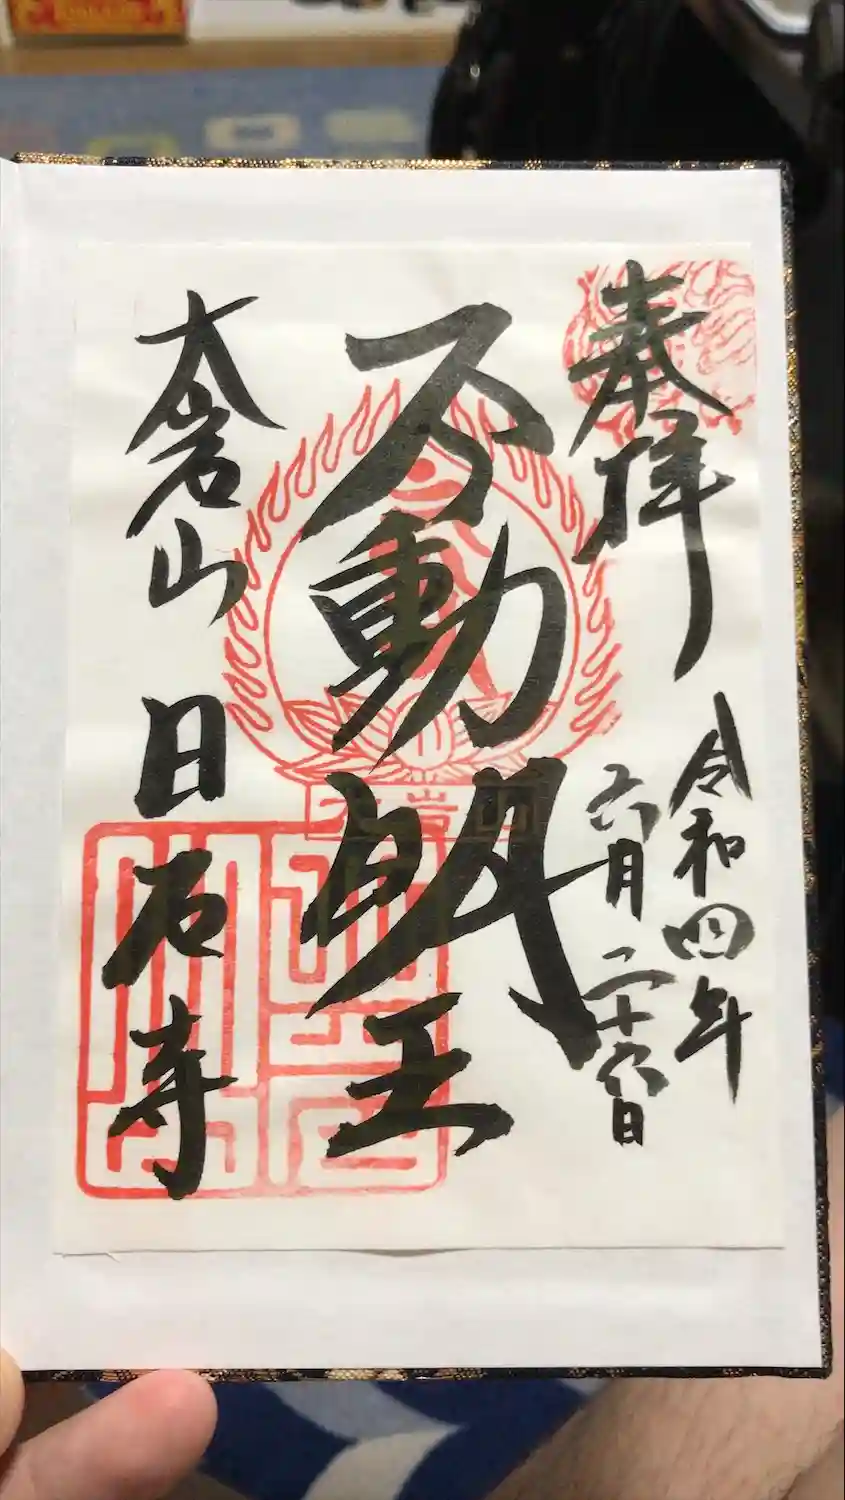 奉拝
令和四年
六月二十六日
不動明王
大岩山
大岩山
日石寺